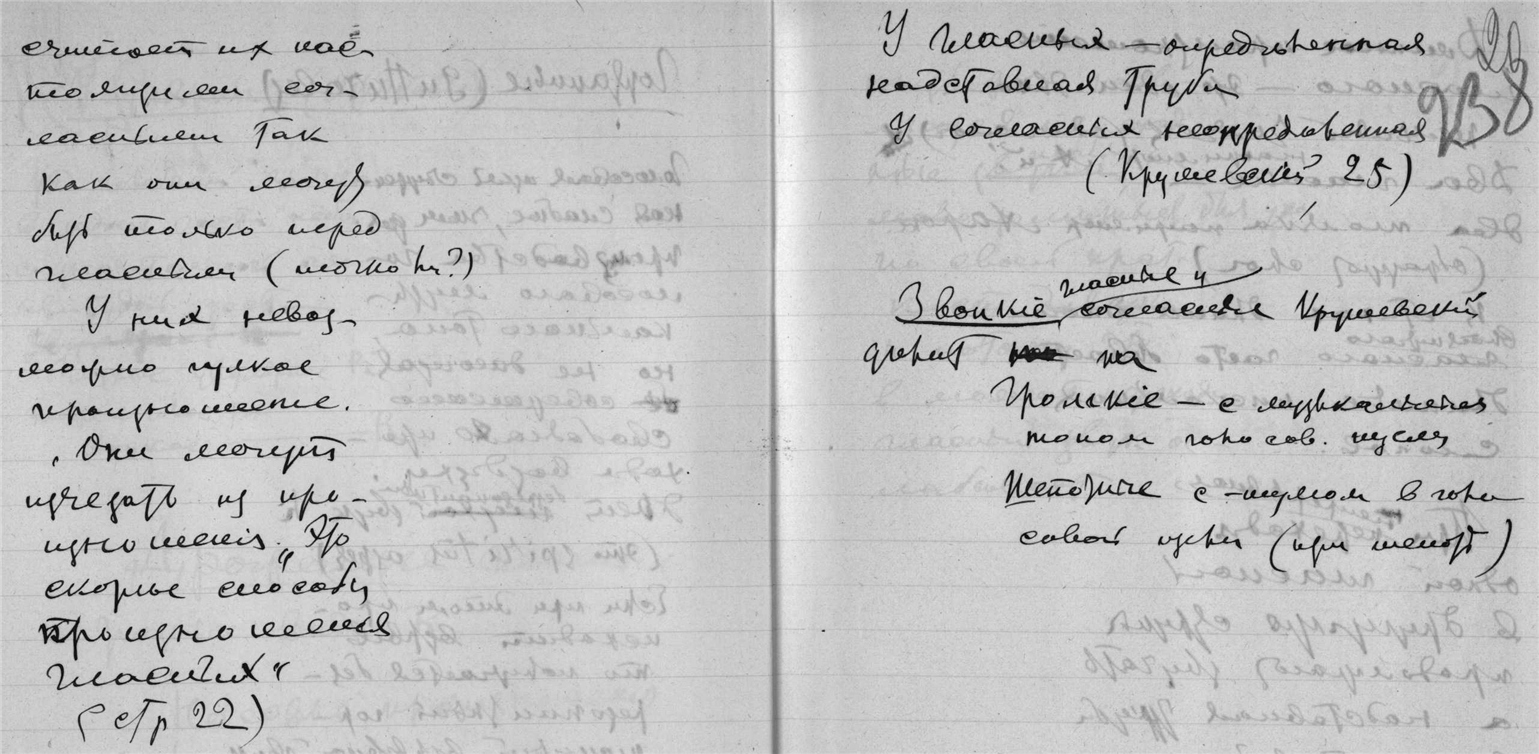 считает их нас-
тоящими сог-
ласными так
как они могут
быть только перед
гласными (точно ли?)
У них невоз-
можно гулкое
произношение.
"Они могут
исчезать из про-
изношенія. Это
скорѣе способы
произношения
гласных"
(стр 22)
У гласных — опредѣленная
надставная труба
У согласных неопредѣленная
(Крушевскій 25)
26
238
гласные и
Звонкіе согласныя Крушевскій
дѣлит на
Громкіе — с музыкальным
тоном голосов. щели
Шепотные с шумом в голо
совой щели (при шепоте)